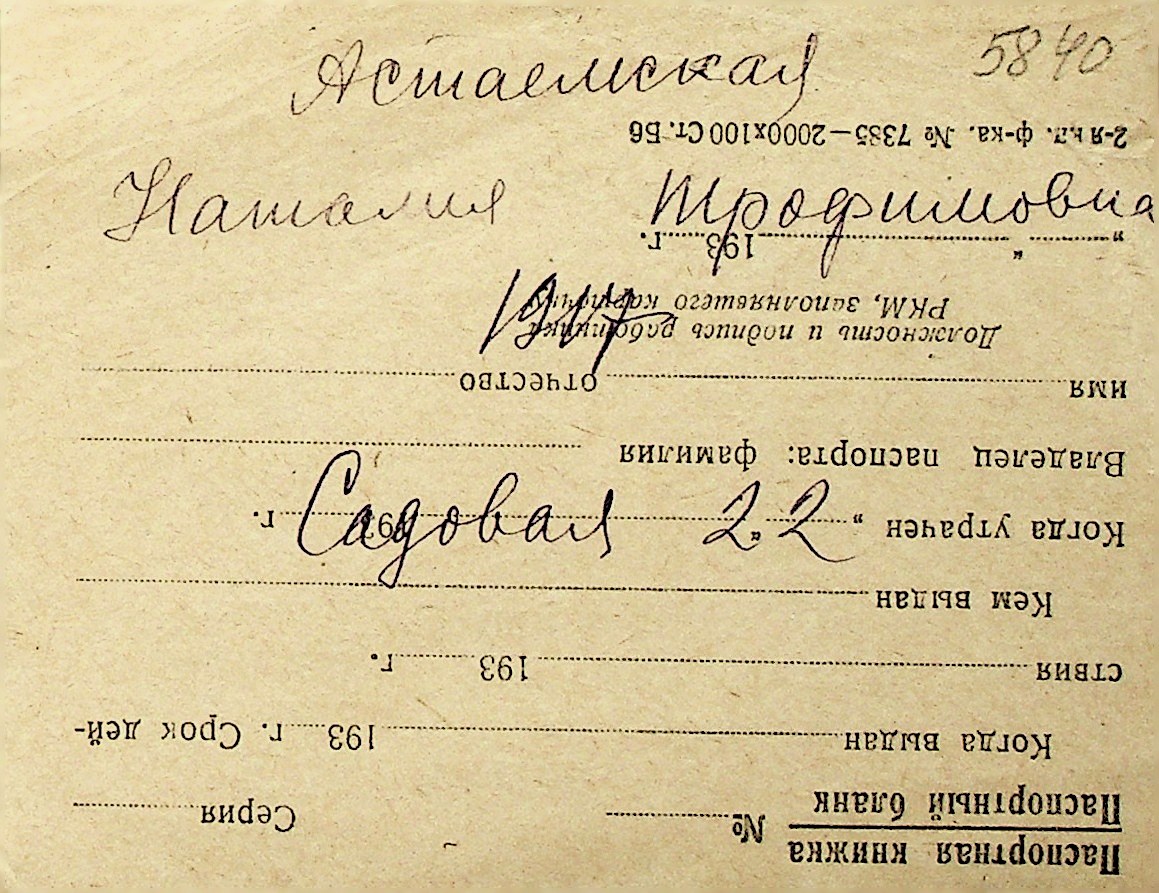 Астаемская 5840
Наталия Трофимовна
1917
Садовая 22
Паспортная книжка
Паспортный бланк № Серия
Когда выдан 193 г. Срок дей-
ствия 193 г.
Кем выдан
Когда утрачен „ “ 193 г.
Владелец паспорта: фамилия
имя отчество
Должность и подпись работника
РКМ, заполнявшего карточку
„ “ 193 г.
2-я кл. ф-ка. № 7385—2000х100 Ст. Бб